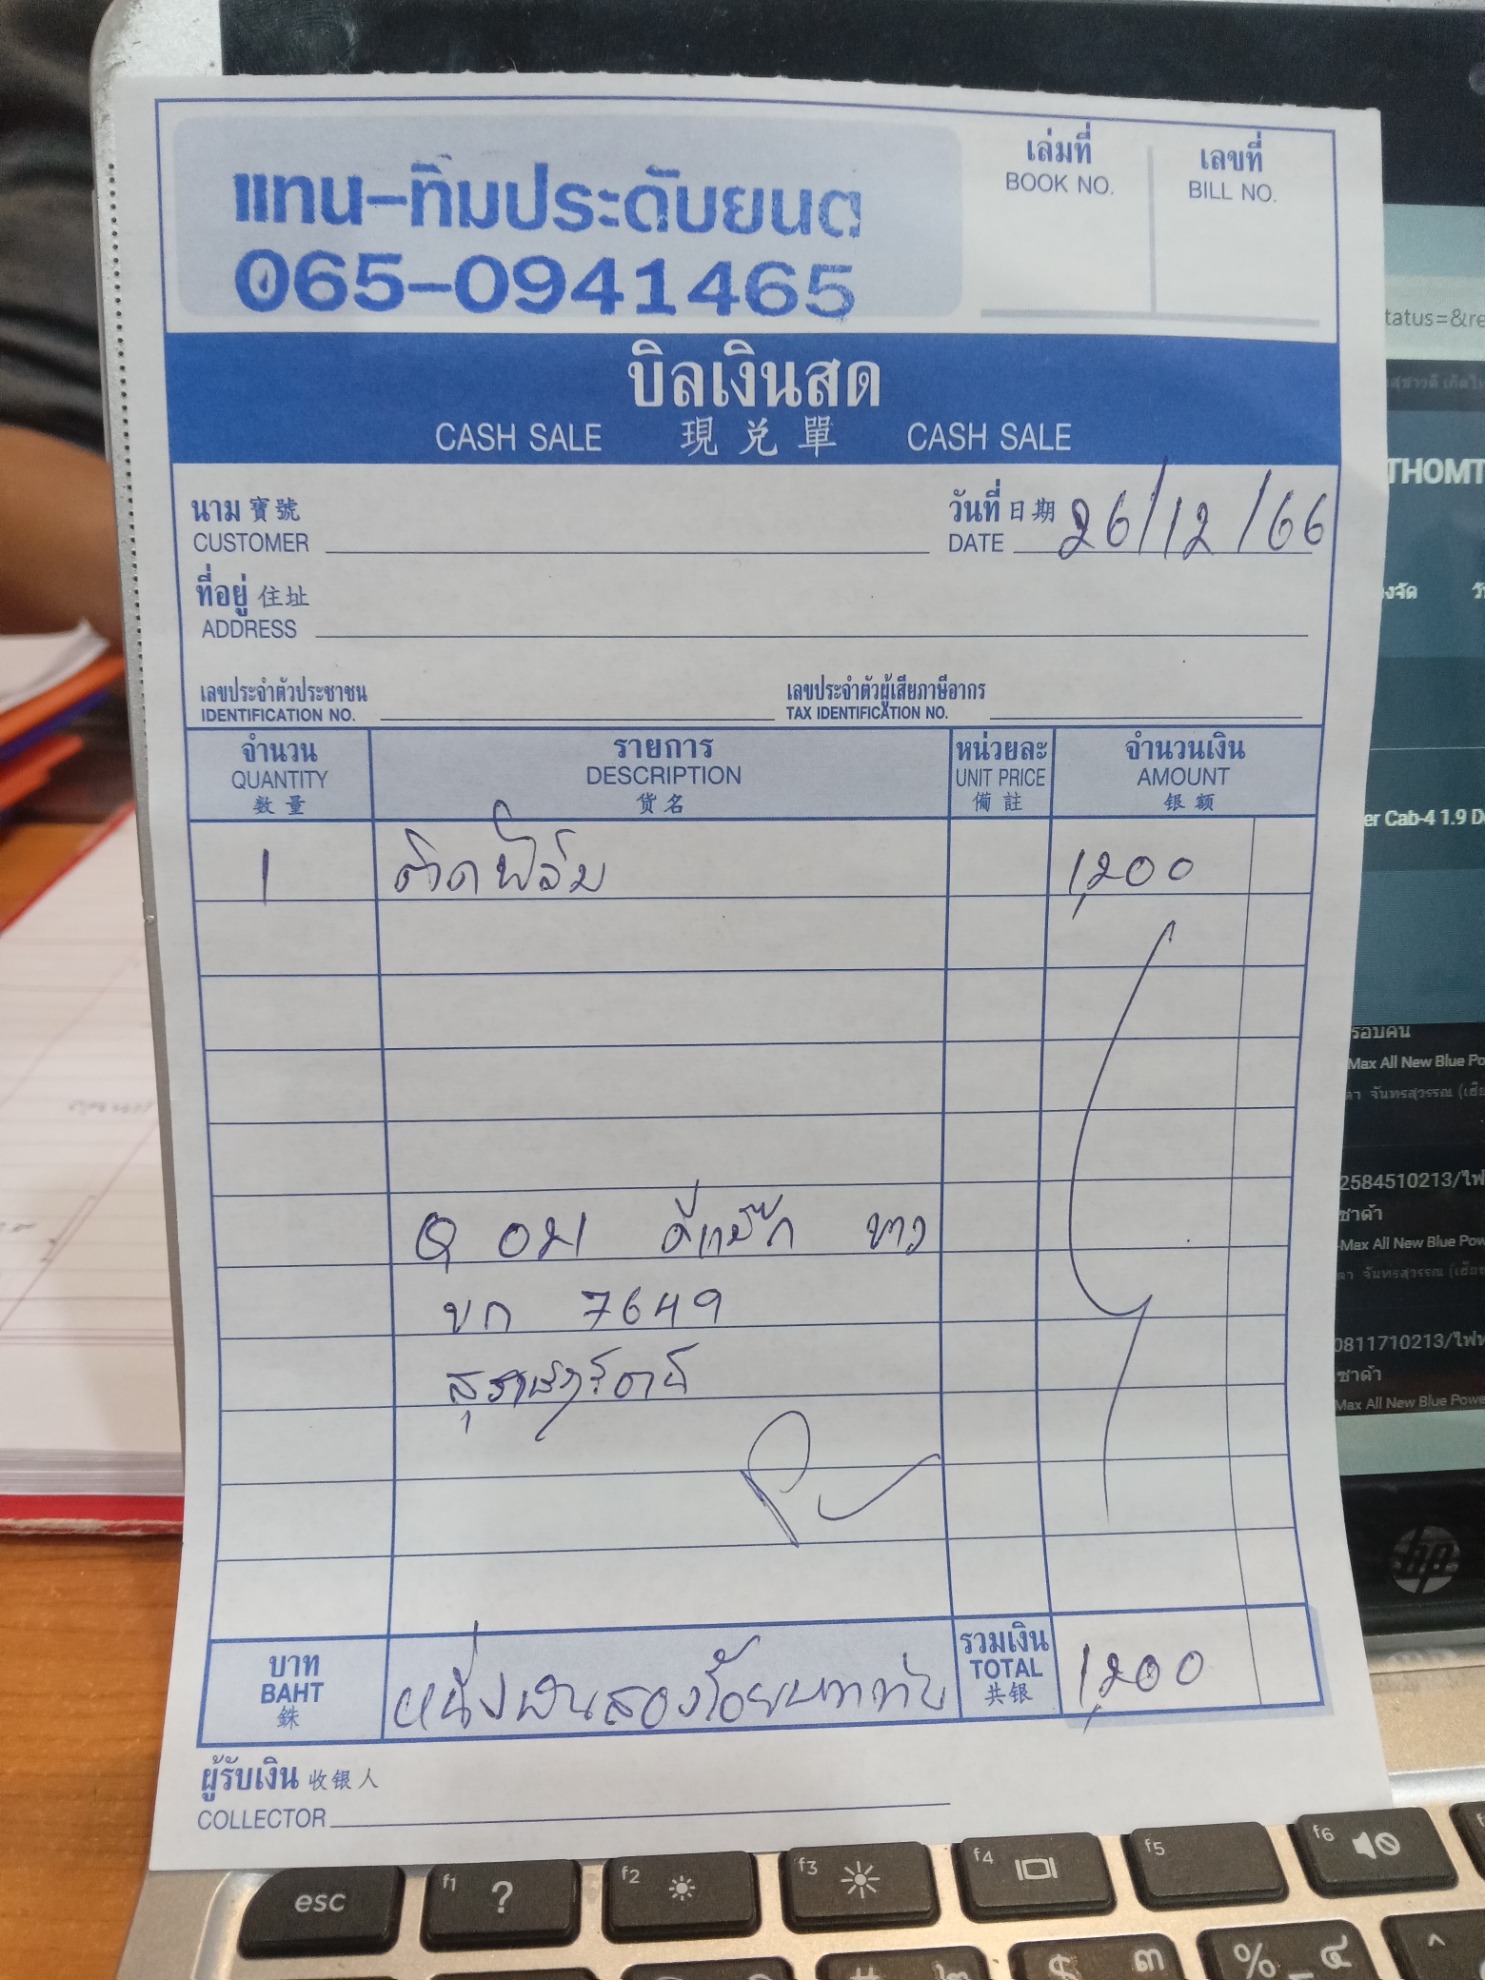 แทน-ทิมประดับยนต
065-0941465
เล่มที่
BOOK NO.
เลขที่
BILL NO.
บิลเงินสด
CASH SALE 現兌單 CASH SALE
นาม 寶號
CUSTOMER
วันที่ 日期 26/12/66
DATE
ที่อยู่ 住址
ADDRESS
เลขประจำตัวประชาชน
IDENTIFICATION NO.
เลขประจำตัวผู้เสียภาษีอากร
TAX IDENTIFICATION NO.
จำนวน
QUANTITY
数量
รายการ
DESCRIPTION
货名
หน่วยละ
UNIT PRICE
備註
จำนวนเงิน
AMOUNT
银额
1 ติดฟิล์ม 1,200
ดีแม็ก ขาว
ขก 7649
สุราษฎร์ธานี
บาท
BAHT
銖
หนึ่งพันสองร้อยบาทถ้วน
รวมเงิน
TOTAL
共银
1,200
ผู้รับเงิน 收银人
COLLECTOR
tatus=&re
THOMT
er Cab-4 1.9 D
รอบคน
Max All New Blue Po
จันทรสุวรรณ
2584510213/ไฟ
ซาด้า
-Max All New Blue Pow
จันทรสุวรรณ
0811710213/ไฟ
ซาด้า
Max All New Blue Powe
hp
esc
f1 ?
f2
f3
f4
f5
f6
$ ๓
% ๔